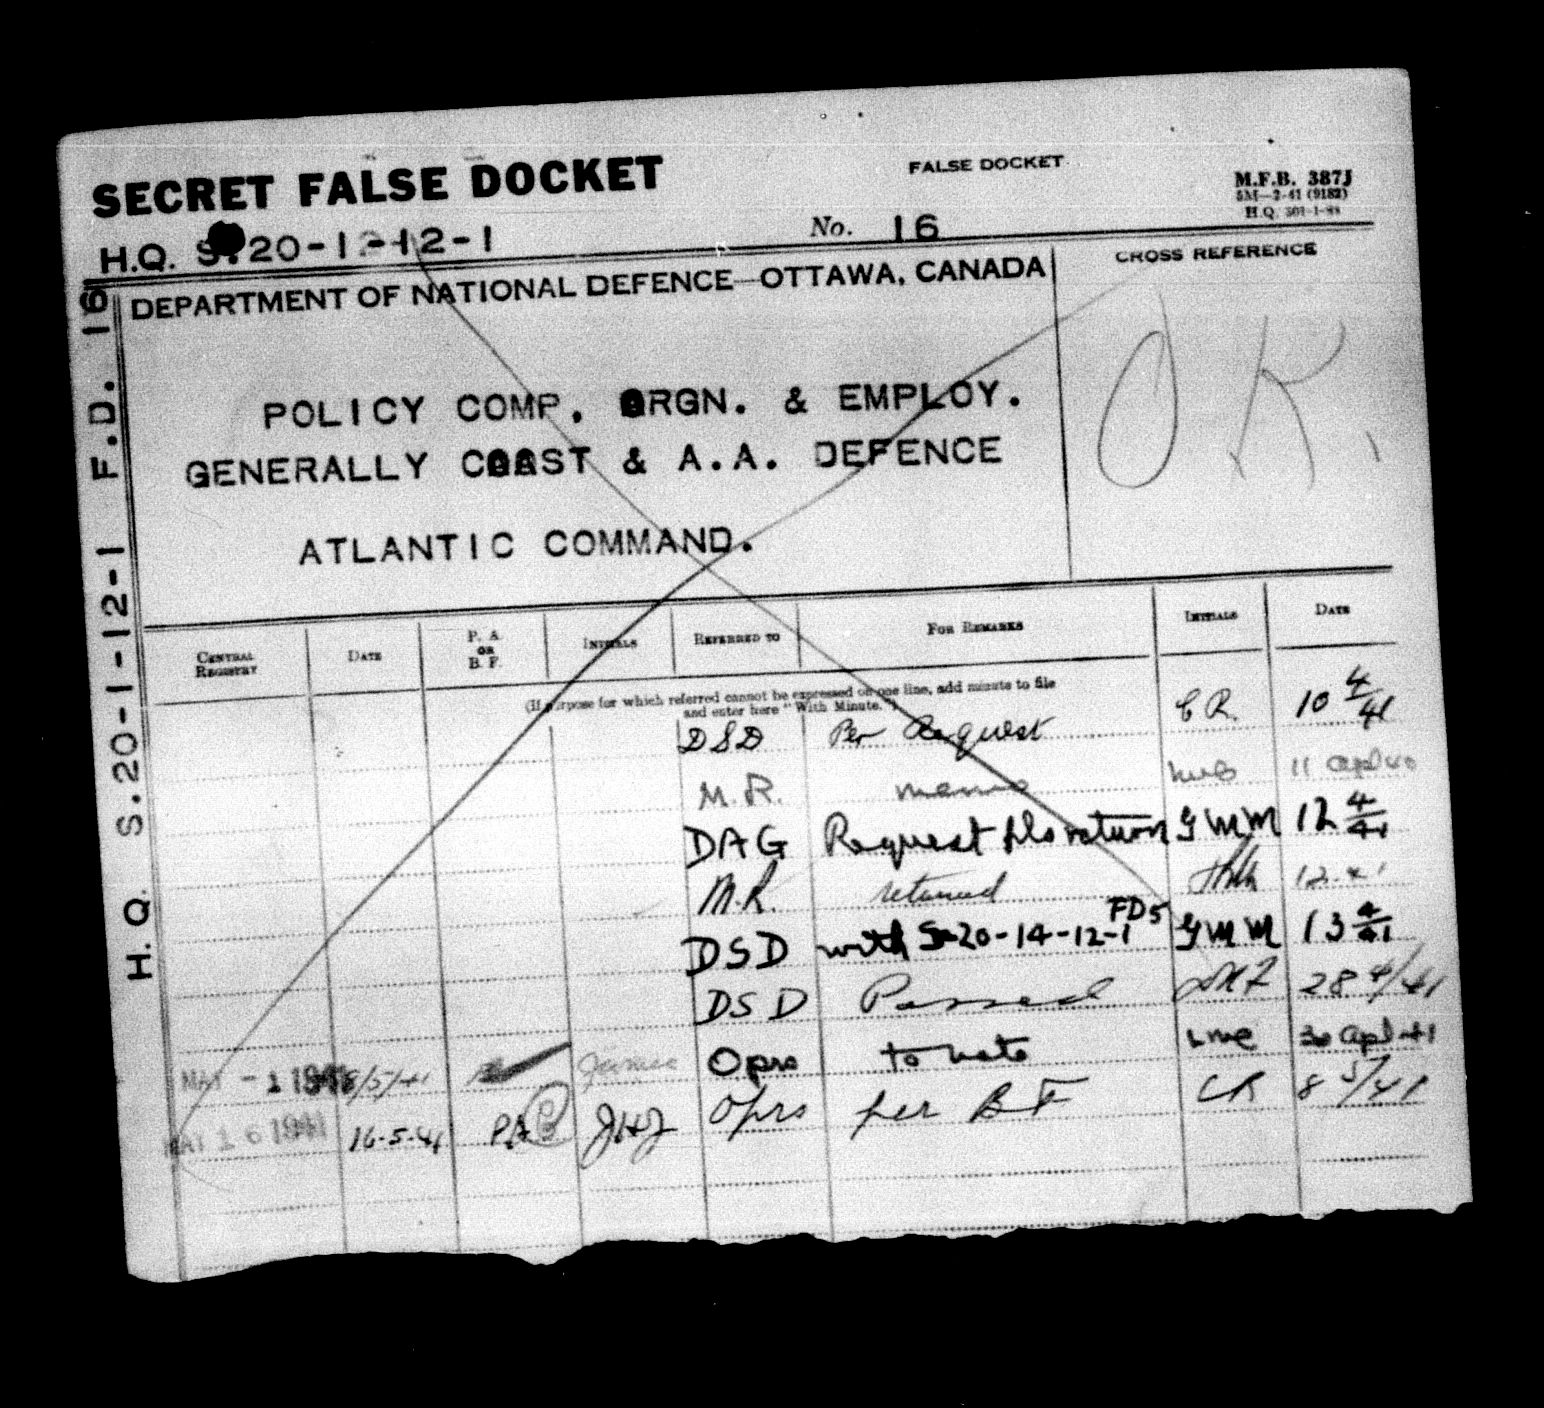 SECRET FALSE DOCKET
FALSE DOCKET
M.F.B. 387J
5M—2-41 (9182)
H.Q.
H.Q. S.20-1-12-1
No. 16
DEPARTMENT OF NATIONAL DEFENCE—OTTAWA, CANADA
CROSS REFERENCE
O.K.
POLICY COMP. ORGN. & EMPLOY.
GENERALLY COAST & A.A. DEFENCE
ATLANTIC COMMAND.
H.Q. S.20-1-12-1 F.D. 16
CENTRAL REGISTRY DATE P. A. OR B. F. INITIALS REFERRED TO FOR REMARKS INITIALS DATE
(If purpose for which referred cannot be expressed on one line, add minute to file
and enter here "With Minute.")
DSD Per Request C R. 10 4/41
M.R. memo 11 apl 40
DAG Request return GMM 12 4/41
M.R. returned
DSD with S-20-14-12-1 FD5 GMM 13 4/41
DSD Passed 28 4/41
Oprs to note 30 apl 41
MAY - 1 1941 8/5/41
Oprs per B F CR 8 5/41
MAY 16 1941 16-5-41 PA JHJ